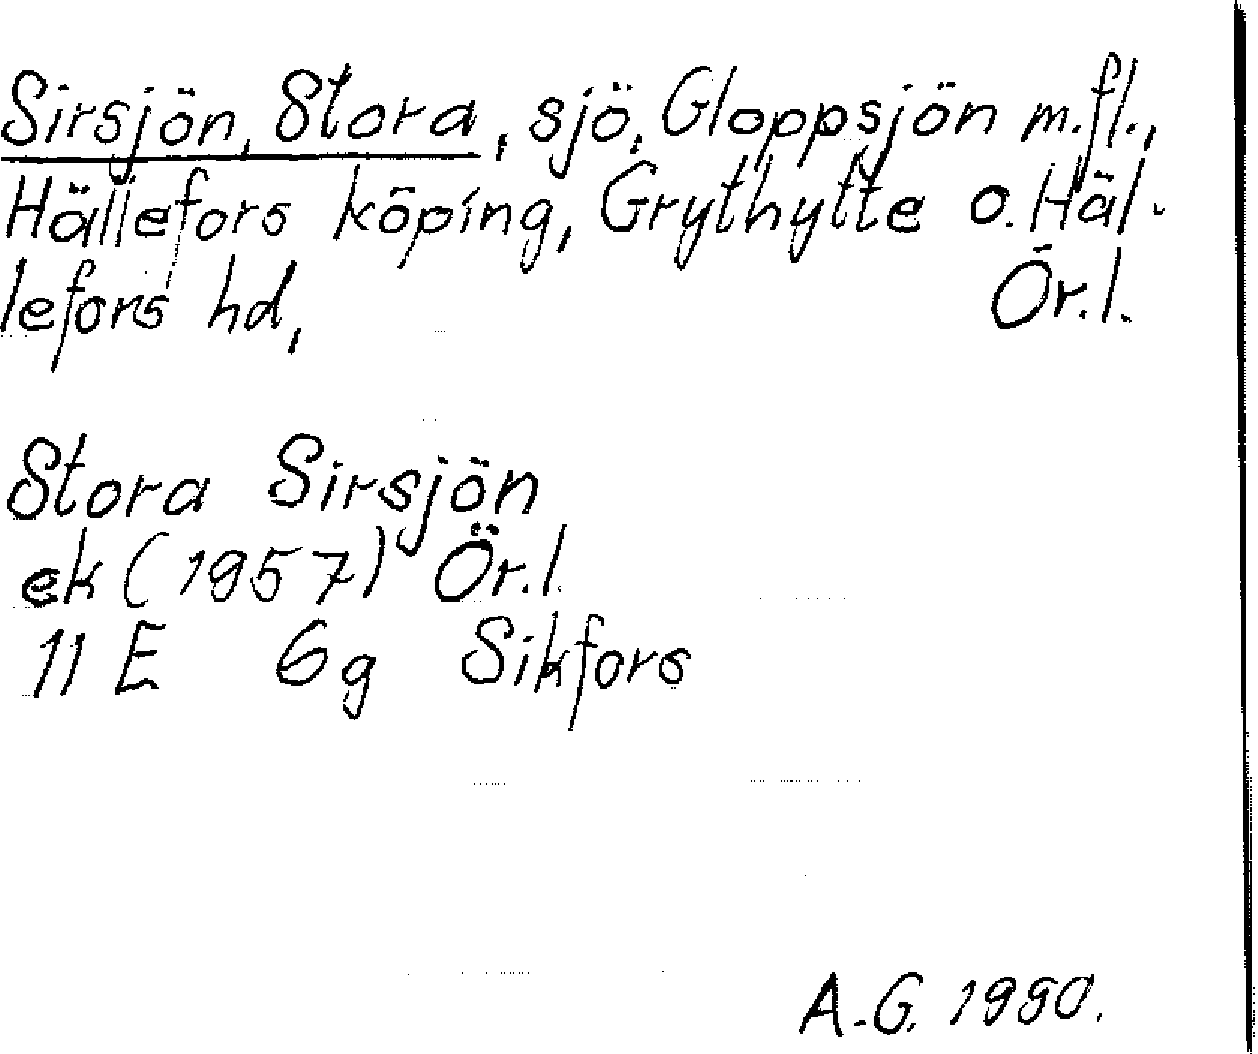 Sirsjön, Stora, sjö, Gloppsjön m.fl.,
Hällefors köping, Grythytte o. Häl-
lefors hd, Ör.l.
Stora Sirsjön
ek (1957) Ör.l.
11 E 6g Sikfors
A.G. 1990.